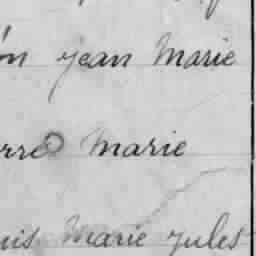 ón jean Marie
rre Marie
uis Marie jules